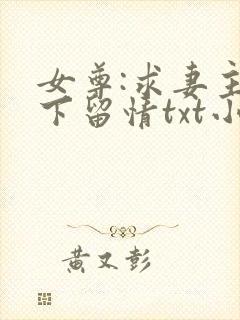 女尊:求妻主
下留情txt小
黄又彭